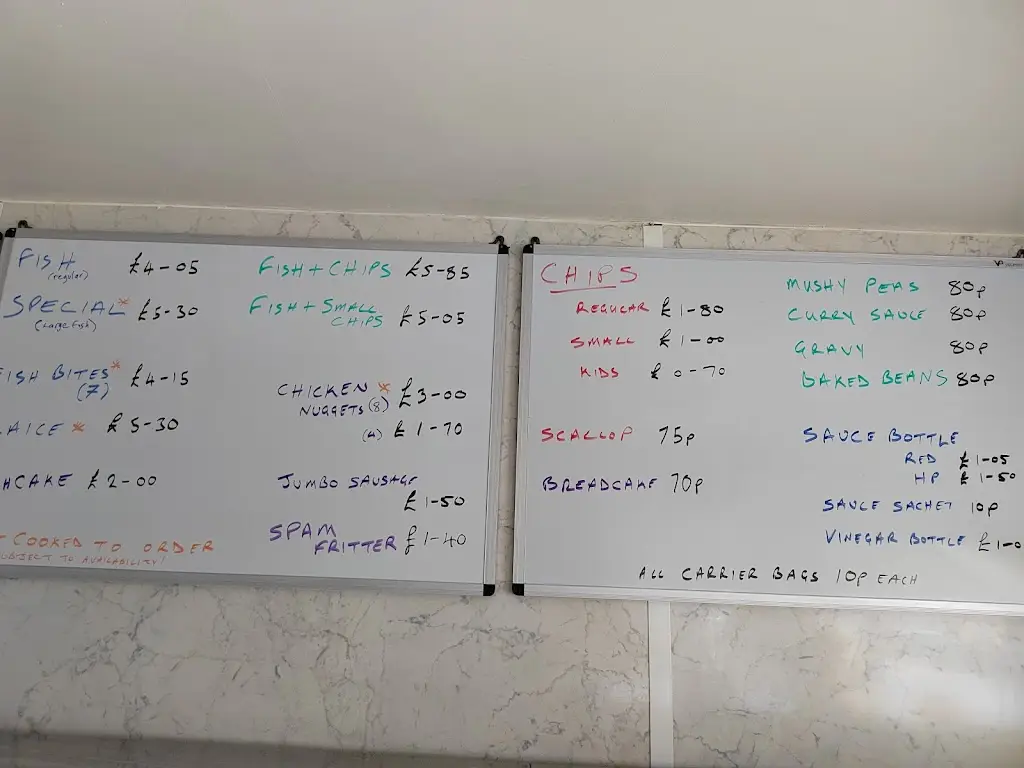 FISH £4-05
(regular)
SPECIAL* £5-30
(Large fish)
FISH BITES* £4-15
(7)
LAICE * £5-30
HCAKE £2-00
COOKED TO ORDER
SUBJECT TO AVAILABILITY!
FISH + CHIPS £5-85
FISH + SMALL
CHIPS £5-05
CHICKEN * £3-00
NUGGETS (8)
(4) £1-70
JUMBO SAUSAGE
£1-50
SPAM
FRITTER £1-40
CHIPS
REGULAR £1-80
SMALL £1-00
KIDS £0-70
SCALLOP 75p
BREADCAKE 70p
MUSHY PEAS 80p
CURRY SAUCE 80p
GRAVY 80p
BAKED BEANS 80p
SAUCE BOTTLE
RED £1-05
HP £1-50
SAUCE SACHET 10p
VINEGAR BOTTLE £1-0
ALL CARRIER BAGS 10p EACH